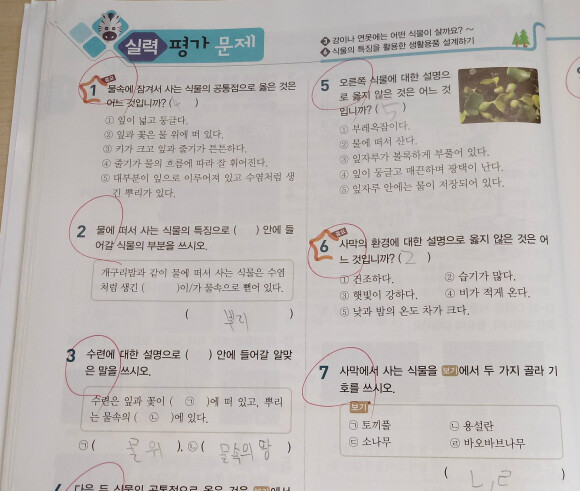 실력 평가 문제
③ 강이나 연못에는 어떤 식물이 살까요? ~
④ 식물의 특징을 활용한 생활용품 설계하기
중요
1 물속에 잠겨서 사는 식물의 공통점으로 옳은 것은
어느 것입니까? ( 4 )
① 잎이 넓고 둥글다.
② 잎과 꽃은 물 위에 떠 있다.
③ 키가 크고 잎과 줄기가 튼튼하다.
④ 줄기가 물의 흐름에 따라 잘 휘어진다.
⑤ 대부분이 잎으로 이루어져 있고 수염처럼 생
긴 뿌리가 있다.
2 물에 떠서 사는 식물의 특징으로 ( ) 안에 들
어갈 식물의 부분을 쓰시오.
개구리밥과 같이 물에 떠서 사는 식물은 수염
처럼 생긴 ( )이/가 물속으로 뻗어 있다.
( 뿌리 )
3 수련에 대한 설명으로 ( ) 안에 들어갈 알맞
은 말을 쓰시오.
수련은 잎과 꽃이 ( ㉠ )에 떠 있고, 뿌리
는 물속의 ( ㉡ )에 있다.
㉠ ( 물 위 ), ㉡ ( 물속의 땅 )
다음 두 식물의 공통점으로 옳은 것을 보기에서
5 오른쪽 식물에 대한 설명으
로 옳지 않은 것은 어느 것
입니까? ( 5 )
① 부레옥잠이다.
② 물에 떠서 산다.
③ 잎자루가 볼록하게 부풀어 있다.
④ 잎이 둥글고 매끈하며 광택이 난다.
⑤ 잎자루 안에는 물이 저장되어 있다.
중요
6 사막의 환경에 대한 설명으로 옳지 않은 것은 어
느 것입니까? ( 2 )
① 건조하다. ② 습기가 많다.
③ 햇빛이 강하다. ④ 비가 적게 온다.
⑤ 낮과 밤의 온도 차가 크다.
7 사막에서 사는 식물을 보기에서 두 가지 골라 기
호를 쓰시오.
보기
㉠ 토끼풀 ㉡ 용설란
㉢ 소나무 ㉣ 바오바브나무
( ㄴ, ㄹ )